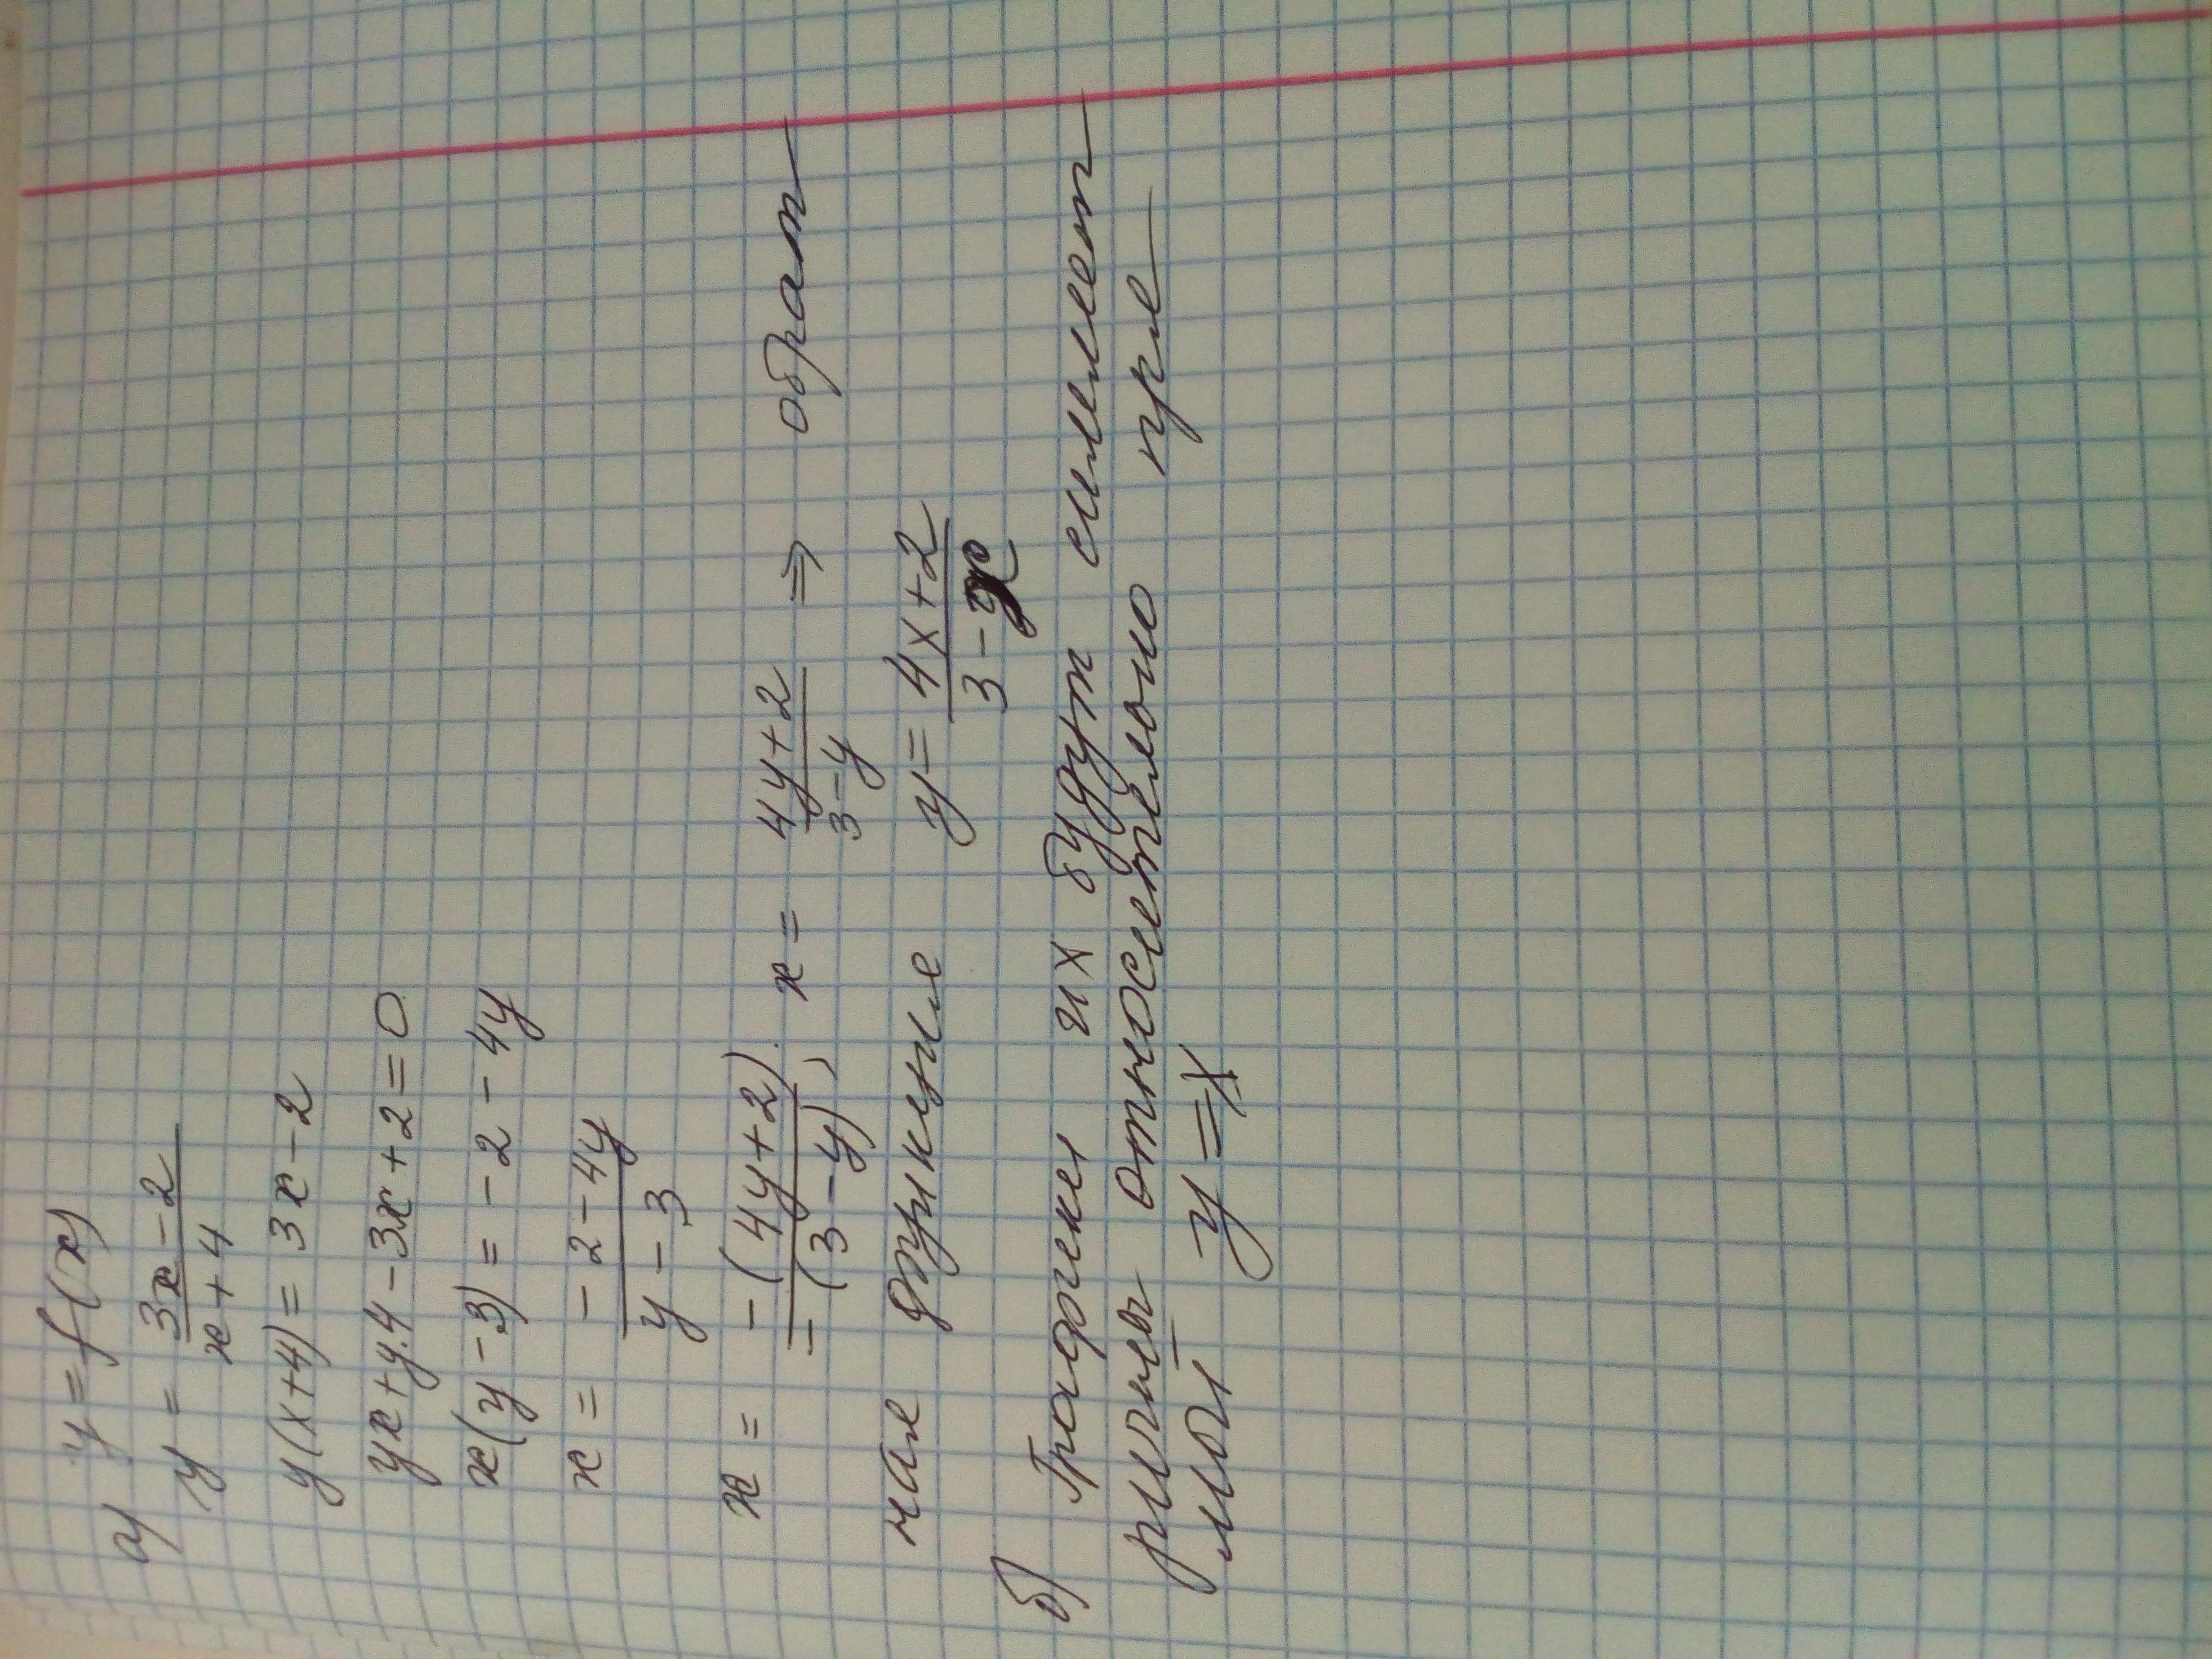 а) y = f(x)
y = \frac{3x-2}{x+4}
y(x+4) = 3x-2
yx+y.4-3x+2=0
x(y-3) = -2-4y
x = \frac{-2-4y}{y-3}
x = \frac{-(4y+2)}{-(3-y)}, x = \frac{4y+2}{3-y} ⇒ обрат
ная функция y = \frac{4x+2}{3-x}
б) Графики их будут симмет
ричны относительно пря
мой y=x